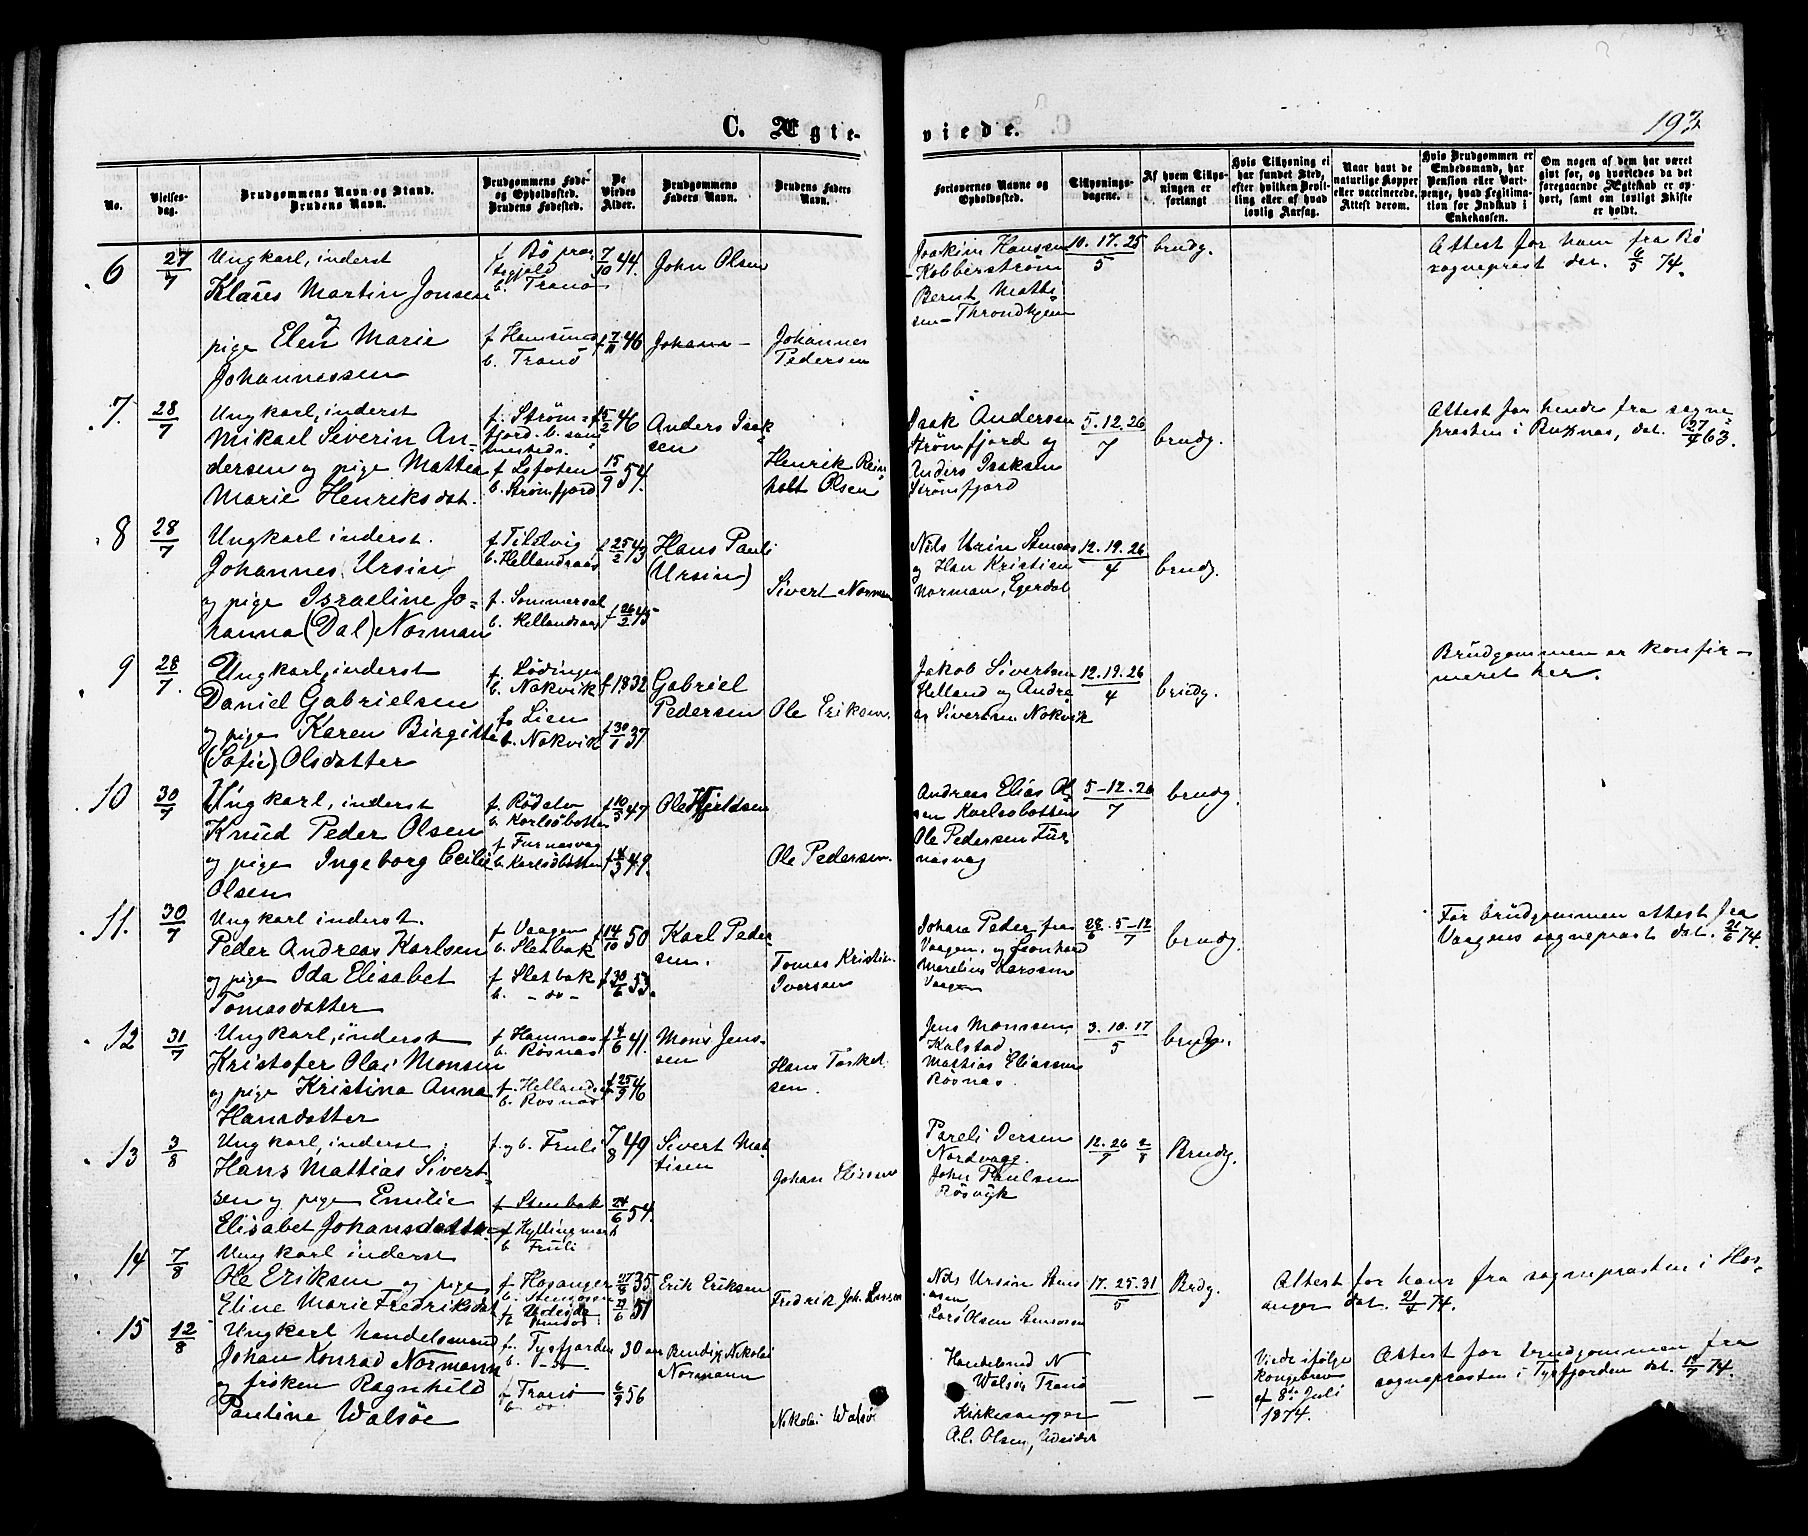 C. Ægte-
viede.
193
No.
Vielses-
dag.
Brudgommens Navn og Stand.
Brudens Navn.
Brudgommens Føde-
og Opholdssted.
Brudens Fødested.
De
Viedes
Alder.
Brudgommens
Faders Navn.
Brudens Faders
Navn.
Forlovernes Navne og
Opholdssted.
Tillysnings-
dagene.
Af hvem Tillys-
ningen er
forlangt
Hvis Tillysning ei
har fundet Sted,
efter hvilken Bevil-
ling eller af hvad
lovlig Aarsag.
Naar havt de
naturlige Kopper
eller vaccinerede.
Attest derom.
Hvis Brudgommen er
Embedsmand, har
Pension eller Vart-
penge, hvad Legitima-
tion for Indskud i
Enkekassen.
Om nogen af dem har været
gift før, og hvorledes da det
foregaaende Ægteskab er op-
hørt, samt om lovligt Skifte
er holdt.
6 27/7 Ungkarl, inderst
Klaus Martin Jonsen
og
pige Elen Marie
Johannessen
f Bø
b. Tranø
f Hamsund
b. Tranø
7/10 44.
46
John Olsen
Johannes
Pedersen
Joakim Hansen
Kobberstrøm
Bernt Matti
sen Throndhjem
10. 17. 25/5
brudg.
Attest for ham fra Bø
sogneprest dat. 6/5 74.
7. 28/7 Ungkarl, inderst
Mikael Siverin An-
dersen og pige Mattea
Marie Henriksdat.
f. Strøm-
fjord. b. sam
mesteds.
f Lofoten
b. Strømfjord
15/2 46
15/9 54.
Anders Isak
sen
Henrik Rein
holt Olsen
Isak Andersen
Strømfjord og
Anders Isaksen
Strømfjord
5. 12. 26/7
brudg.
Attest for hende fra sogne
presten i Buxnæs, dat. 27/4 63.
8 28/7 Ungkarl inderst.
Johannes Ursin
og pige Israeline Jo-
hanna (Dal) Norman
b. Hellandsaas
f. Sommersel
b. Hellandsaas
f 25/2 43
f 26/2 45
Hans Pauli
(Ursin)
Sivert Norman
Nils Ursin Stensaas
og Han Kristien
Norman, Egerdal
12. 19. 26/4
brudg.
9 28/7. Ungkarl, inderst
Daniel Gabrielsen
og pige Karen Birgitte
(Sofie) Olsdatter
f. Lødingen
b. Nakvik
f. Lien
b. Nakvik
f 1832
f 30/1 37
Gabriel
Pedersen
Ole Eriksen.
Jakob Sivertsen
Helland og Andre
as Sivertsen Nokvik
12. 19. 26/4
brudg.
Brudgommen er konfir-
meret her.
10 30/7 Ungkarl, inderst
Knud Peder Olsen
og pige Ingeborg Cecilie
Olsen
f. Rødelv
b. Karlsøbotten
f Furnasvag
b. Karlsøbotten
f 10/5 47
f 4/3 49.
Ole Hjeldsen
Ole Pedersen.
Andreas Elias Ol
sen Karlsøbotten
Ole Pedersen Fur
nasvag
5-12. 26/7
brudg.
11. 30/7 Ungkarl inderst.
Peder Andreas Karlsen
og pige Ida Elisabet
Tomasdatter
f Vaagen
b. Sletbak
f Sletbak
b. - do -
f 14/10 50
f 30/6 53.
Karl Peder
sen.
Tomas Kristia
Iversen
Johan Peder fra
Vaagen, og Leonhard
Marelius Larssen
Vaagen
28/6 5-12/7
brudg.
For brudgommen attest fra
Vaagens sogneprest dat. 21/6 74.
12 31/7 Ungkarl, inderst
Kristofer Olai Monsen
og pige Kristina Anna
Hansdatter
f. Hamnes
b. Røsnas
f. Helland
b. Rosnas
f 4/6 41.
f 25/9 46
Mons Jens-
sen
Hans Tørkel
sen.
Jens Monssen,
Kalstad,
Mattias Eliassen
Røsnas.
3. 10. 17/5
brudg.
13 3/8 Ungkarl, inderst.
Hans Mattias Sivert
sen og pige Emilie
Elisabet Johansdatter
f. og b. Fruli
f. Stenbak
f Kyllingmark
b Fruli
7/8 49
24/6 54.
Sivert Mat
tisen
Johan Eliessen
Pareli Iersen
Nordvagg.
John Paulsen
Røsvik
12. 26/7 2/8
Brudg.
14 7/8 Ungkarl inderst
Ole Eriksen og pige
Eline Marie Fredriksdat
f Hosanger
b. Stensosen
35
51
Erik Eriksen
Fredrik Joh. Larssen
Nils Ursin
Lars Olsen
17. 25. 31/5
Brdg.
Attest for ham fra sognepresten i Hos-
anger dat. 21/4 74.
15 12/8 Ungkarl handelsmand
Johan Konrad Normann
og frøken Ragnhild
Pauline Walsøe
f. Tysfjorden
b. - do -
f Tranø
b. do
30 aar
6/9 56
Bendix Nikolai
Normann
Nikolai Walsøe
Handelsmd N
Walsøe Tranø
Kirkesanger
A. C. Olsen,
-
-
Viede ifølge
Kongebrev
af 8de Juli
1874.
Attest for brudgommen fra
sognepresten i Tysfjorden dat. 10/7 74.